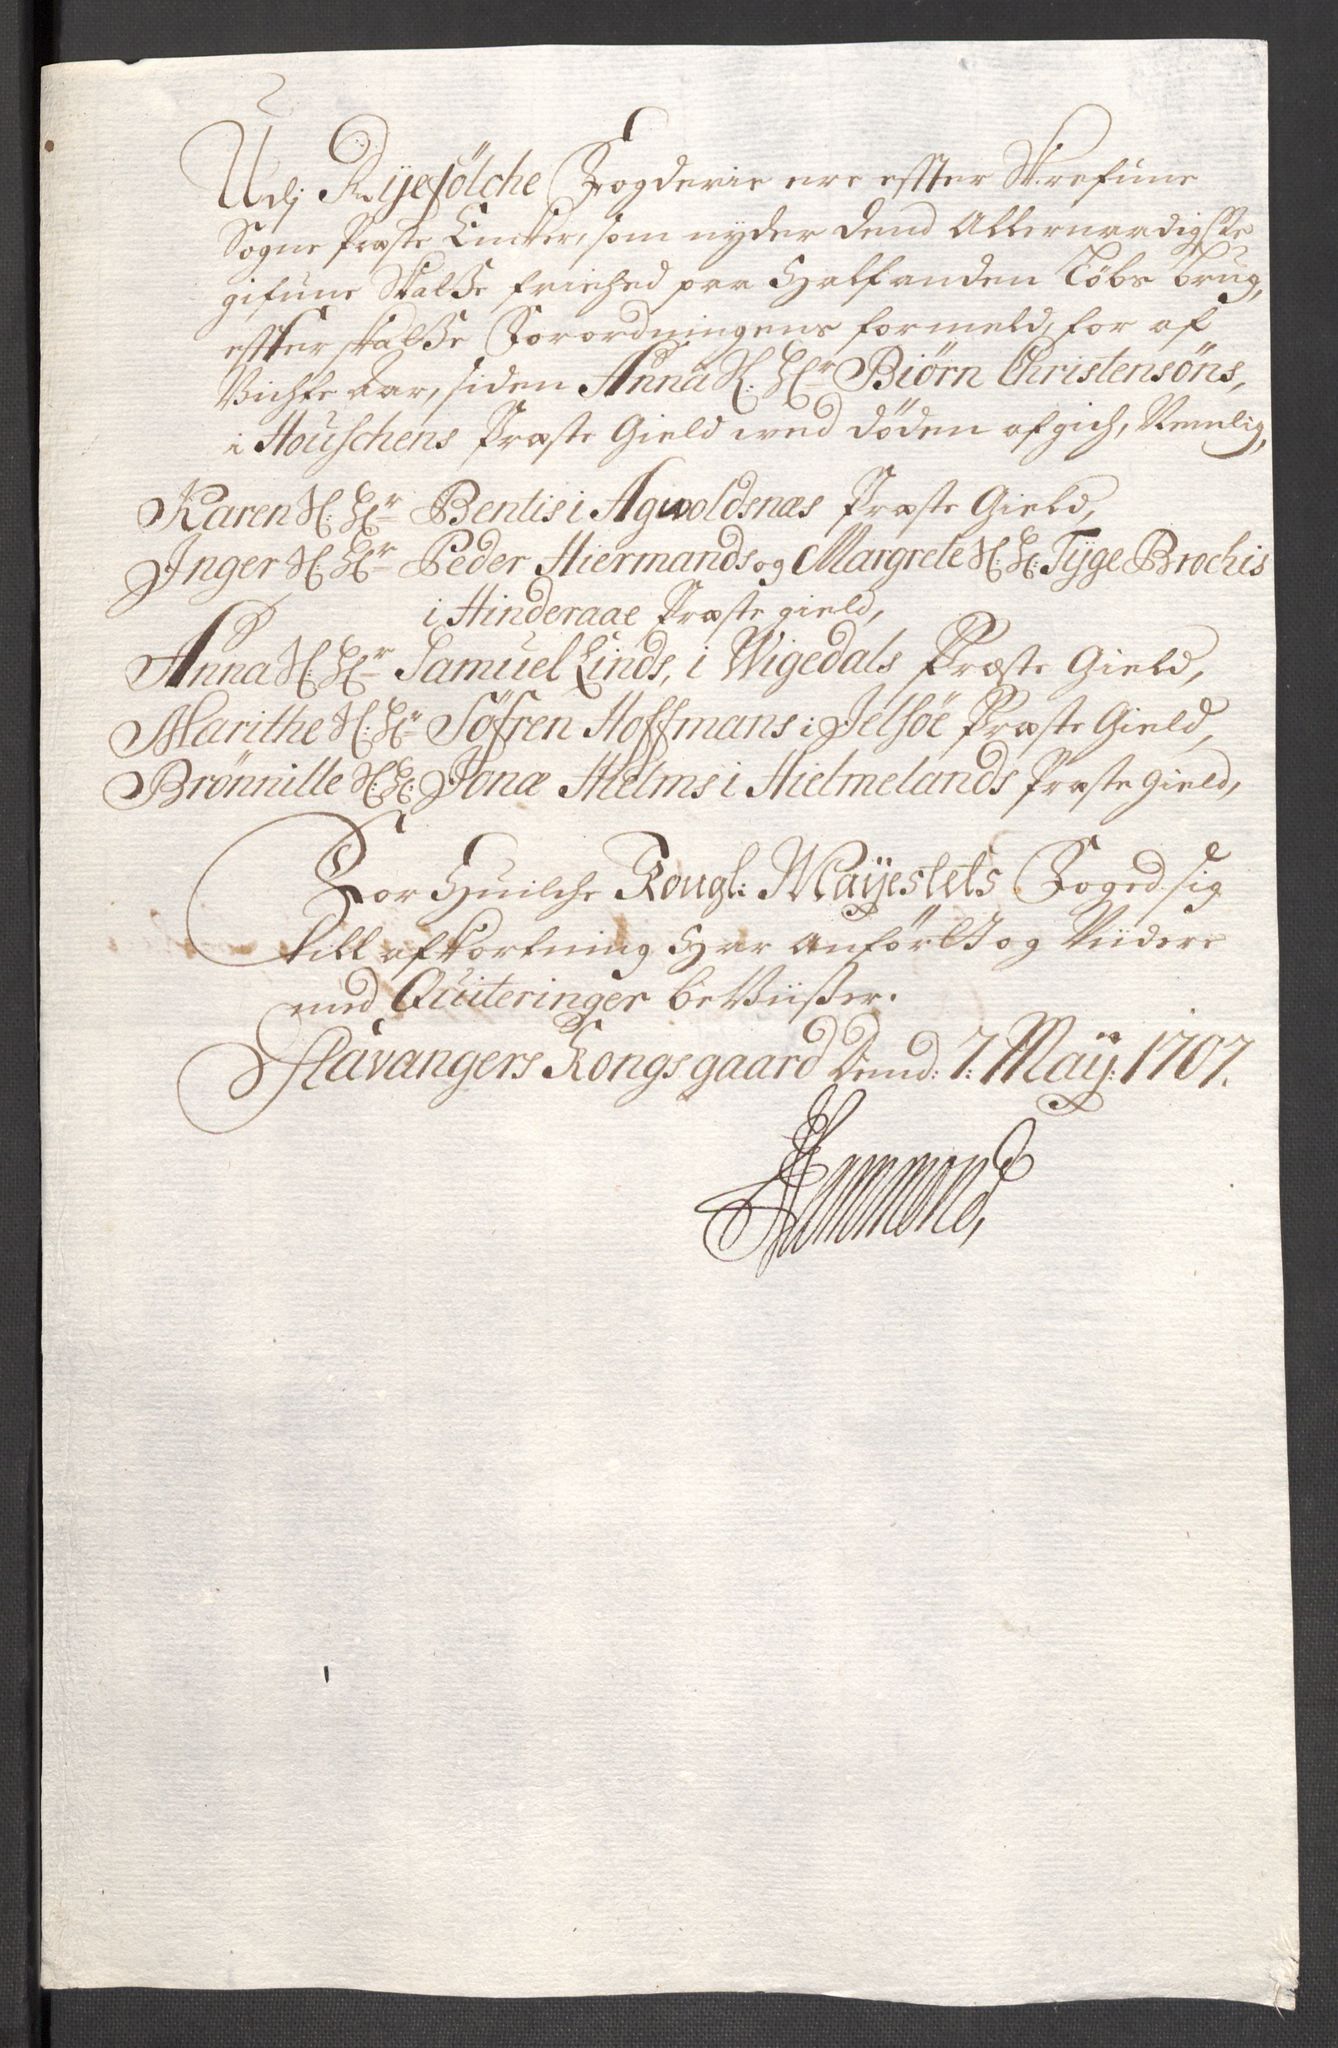 Udj Ryefölche Fogderie ere effter Skrefune
Sogne Præste Encker, som nyder dend Allernaadigste
gifune Skatte friehed paa Halfanden Løbs brug,
effter skatte Forordningens formeld, for af
Vichte Aar, siden Anna Sl. Hr. Biørn Christensöns,
i Houschens Præste Gield ved döden afgich, Nemlig,
Karen Sl: Hr. Bentis i Agwoldsnæs Præste Gield,
Inger Sl. Hr. Peder Hiermands og Margrete Sl: H: Tyge Brochis
i Hinderaae Præste gield,
Anna Sl. Hr. Samuel Linds, i Wigedals Præste Gield,
Marithe Sl: Hr. Søfren Hoffmans i Jelsöe Præste Gield,
Brønnille Sl: H: Jonæ Hielms i Hielmelands Præste gield,
For Huilche Kongl: Mayestets Foged sig
till afkortning Har Anförlt og Viidere
med Quiteringer beViiser.
Stavangers Kongsgaard Dend: 7: Maij: 1707.
Hammond,